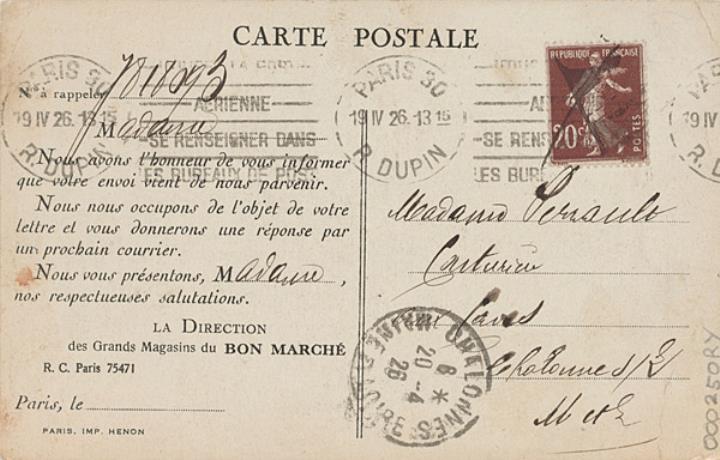 CARTE POSTALE
PARIS 30
19 IV 26.-13 15
R. DUPIN
AÉRIENNE
-SE RENSEIGNER DANS
LES BUREAUX DE POSTE
N° à rappeler
Madame
Nous avons l'honneur de vous informer
que votre envoi vient de nous parvenir.
Nous nous occupons de l'objet de votre
lettre et vous donnerons une réponse par
un prochain courrier.
Nous vous présentons, Madame,
nos respectueuses salutations.
LA DIRECTION
des Grands Magasins du BON MARCHÉ
R. C. Paris 75471
Paris, le
PARIS. IMP. HENON
PARIS 30
19 IV 26.-13 15
R. DUPIN
-SE RENS
LES BURE
REPUBLIQUE FRANÇAISE
20c
POSTES
Madame Perrault
Couturière
aux Caves
Chalonnes s/L
M et L
CHALONNES
MAINE ET LOIRE
6 *
20-4
26
00025DRY